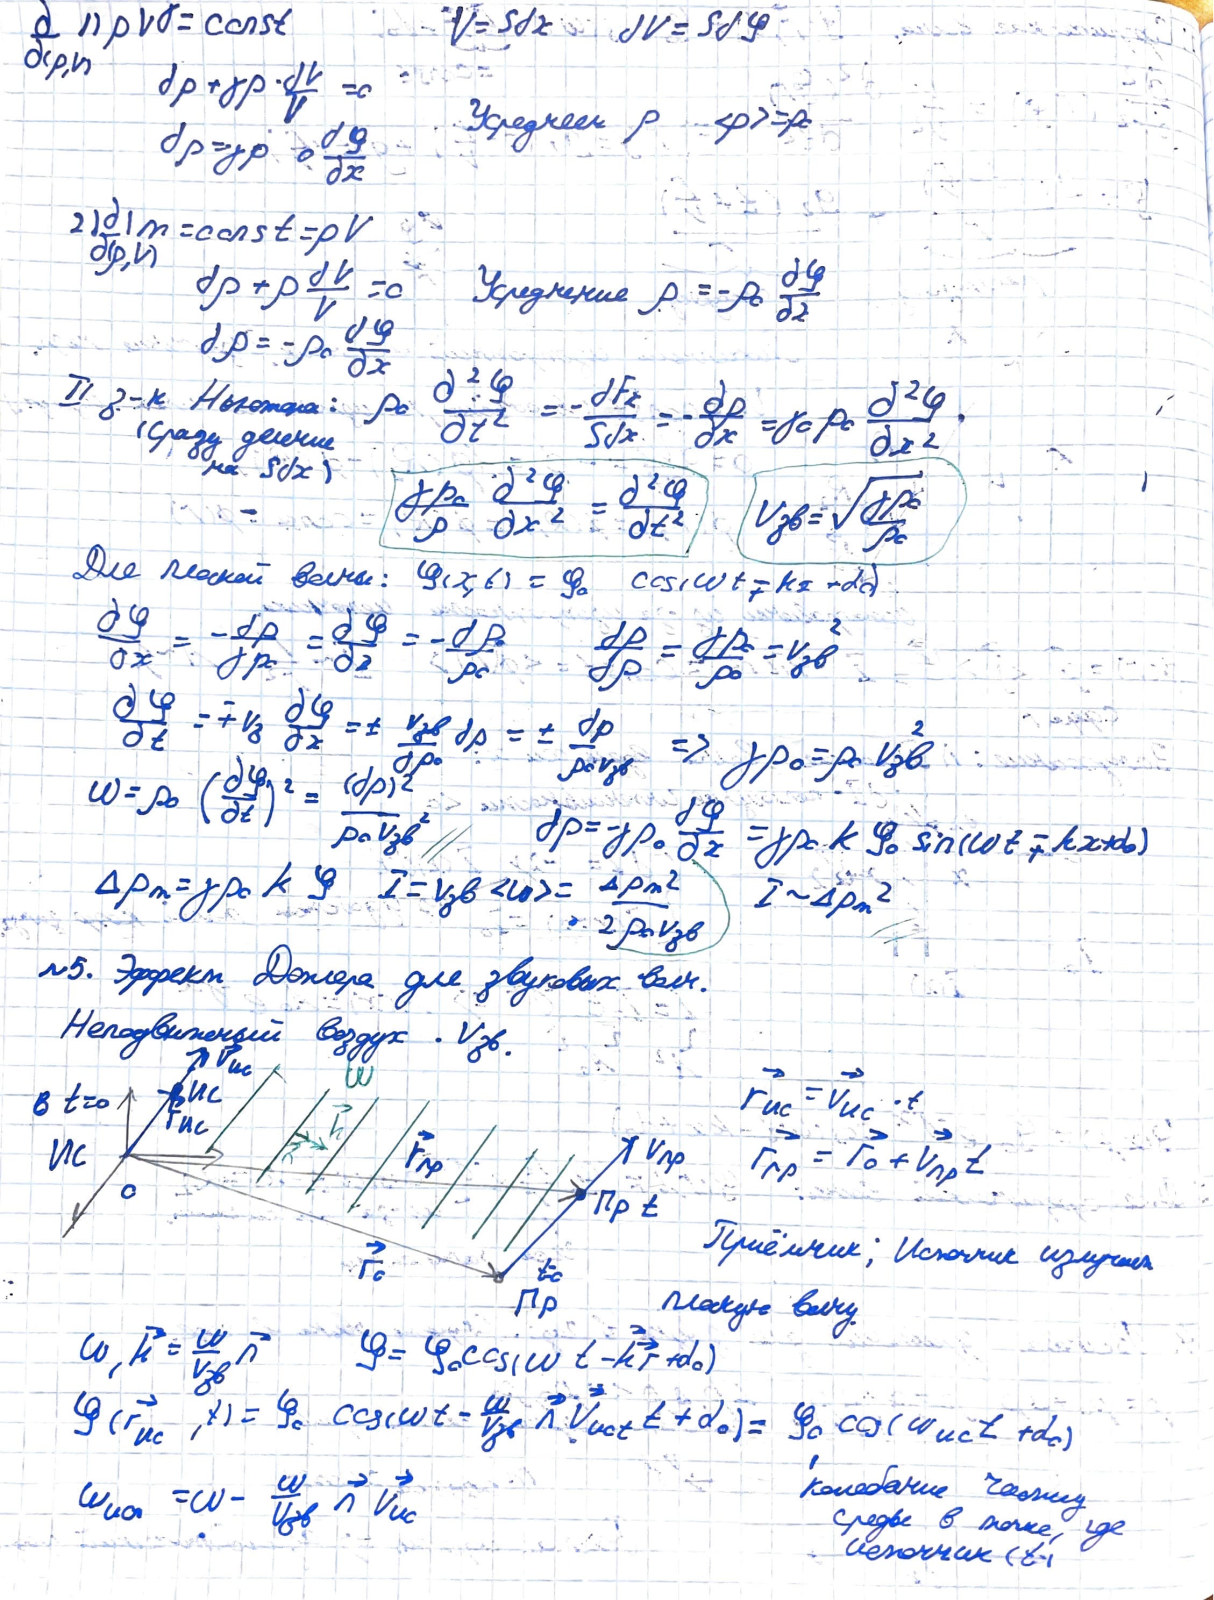 ∂/∂(p,V) 1) pV^γ = const   V = Sdx   dV = Sdφ
dp + γp · dV/V = 0
Усреднен p   <p> = p₀
dp = γp₀ dφ/dx
2) d/d(ρ,V) m = const = ρV
dρ + ρ dV/V = 0   Усреднение ρ = -ρ₀ ∂φ/∂x
dρ = -ρ₀ dφ/dx
II з-н Ньютона: ρ₀ ∂²φ/∂t² = - dFx/Sdx = - ∂p/∂x = γp₀ ∂²φ/∂x².
(сразу делим
на Sdx)
γp₀/ρ ∂²φ/∂x² = ∂²φ/∂t²   Vзв = √(γp₀/ρ₀)
Для плоской волны: φ(x,t) = φ₀ cos(ωt ∓ kx + α₀)
∂φ/∂x = - dp/γp₀ = ∂φ/∂x = - dρ/ρ₀   dp/dρ = γp₀/ρ₀ = Vзв²
∂φ/∂t = ∓ Vз ∂φ/∂x = ± Vзв/γp₀ dp = ± dp/ρ₀Vзв => γp₀ = ρ₀ Vзв²
w = ρ₀ (∂φ/∂t)² = (dp)²/ρ₀Vзв²   dp = -γp₀ ∂φ/∂x = γp₀ k φ₀ sin(ωt ∓ kx + α₀)
Δpm = γp₀ k φ   I = Vзв <w> = Δpm²/2ρ₀Vзв   I ~ Δpm²
№5. Эффект Доплера для звуковых волн.
Неподвижный воздух. Vзв.
V⃗ис
ω
в t=0
ИС
r⃗ис
r⃗ис = V⃗ис · t
k⃗
n⃗
r⃗пр
Vпр
r⃗пр = r⃗₀ + V⃗пр t
ИС
0
Пр t
r⃗₀
t₀
Пр
Приёмник; Источник излучает
плоскую волну.
ω, k⃗ = ω/Vзв n⃗   φ = φ₀ cos(ωt - k⃗r⃗ + α₀)
φ(r⃗ис, t) = φ₀ cos(ωt - ω/Vзв n⃗ V⃗ист t + α₀) = φ₀ cos(ωис t + α₀)
ωист = ω - ω/Vзв n⃗ V⃗ис
колебание частиц
среды в точке, где
источник (t)